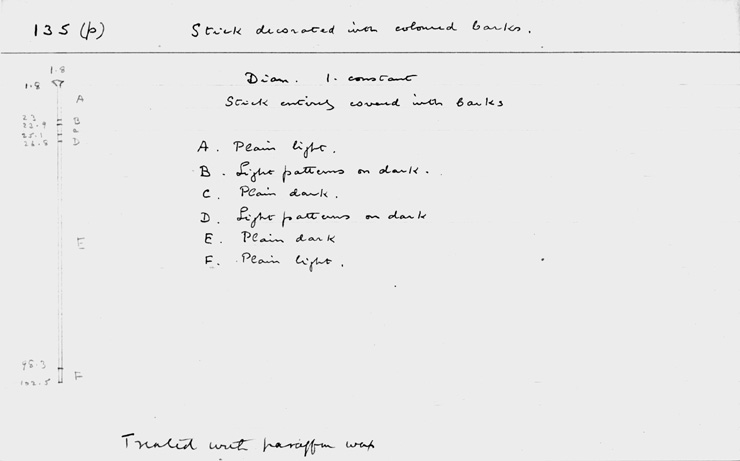 135 (p) Stick decorated with coloured barks.
1.8
1.8
A
Diam. 1. constant
Stick entirely covered with barks
23 B
22.9 C
25.1
26.8 D
A. Plain light.
B. Light patterns on dark.
C. Plain dark.
D. Light patterns on dark
E. Plain dark
F. Plain light.
E
98.3
F
102.5
Treated with paraffin wax